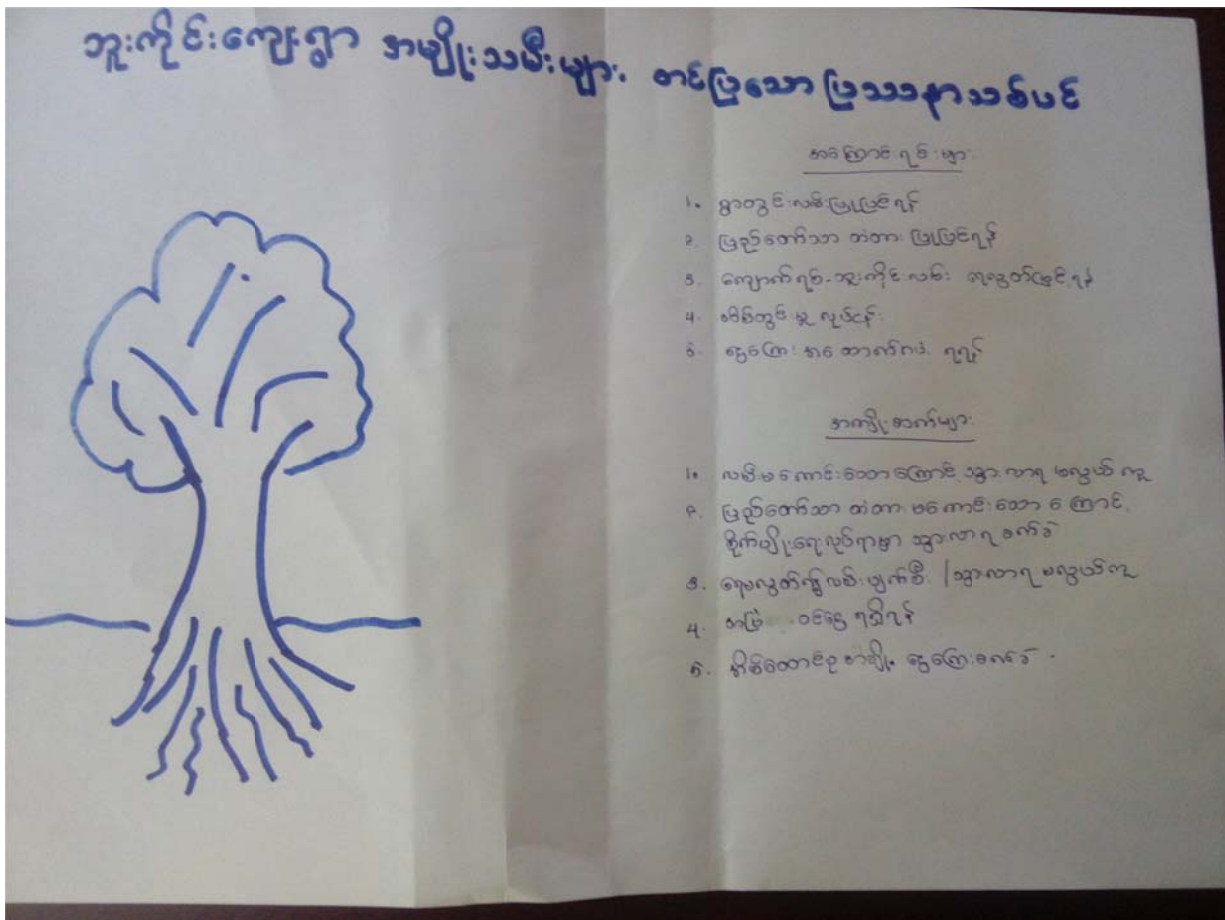 ဘူးကိုင်းကျေးရွာ အမျိုးသမီးများ တင်ပြသော ပြဿနာသစ်ပင်
အကြောင်းရင်းများ
1. ရွာတွင်းလမ်းပြုပြင်ရန်
၂. ပြည်တော်သာ တံတား ပြုပြင်ရန်
၃. ကျောက်ရစ်-ဘူးကိုင်းလမ်း ရေလွှတ်ပြွန်ရန်
၄. အိမ်တွင်းမှု လုပ်ငန်း
၅. ငွေကြေး အထောက်အပံ့ ရရန်
အကျိုးဆက်များ
1. လမ်းမကောင်းသောကြောင့် သွားလာရ မလွယ်ကူ
၂. ပြည်တော်သာ တံတား မကောင်းသောကြောင့်
စိုက်ပျိုးရေးလုပ်ရာမှာ သွားလာရ ခက်ခဲ
၃. ရေမလွှတ်၍လမ်းပျက်စီး /သွားလာရ မလွယ်ကူ
၄. ဝင်ငွေ ရရှိရန်
၅. အိမ်ထောင်စု ငွေကြေးခက်ခဲ